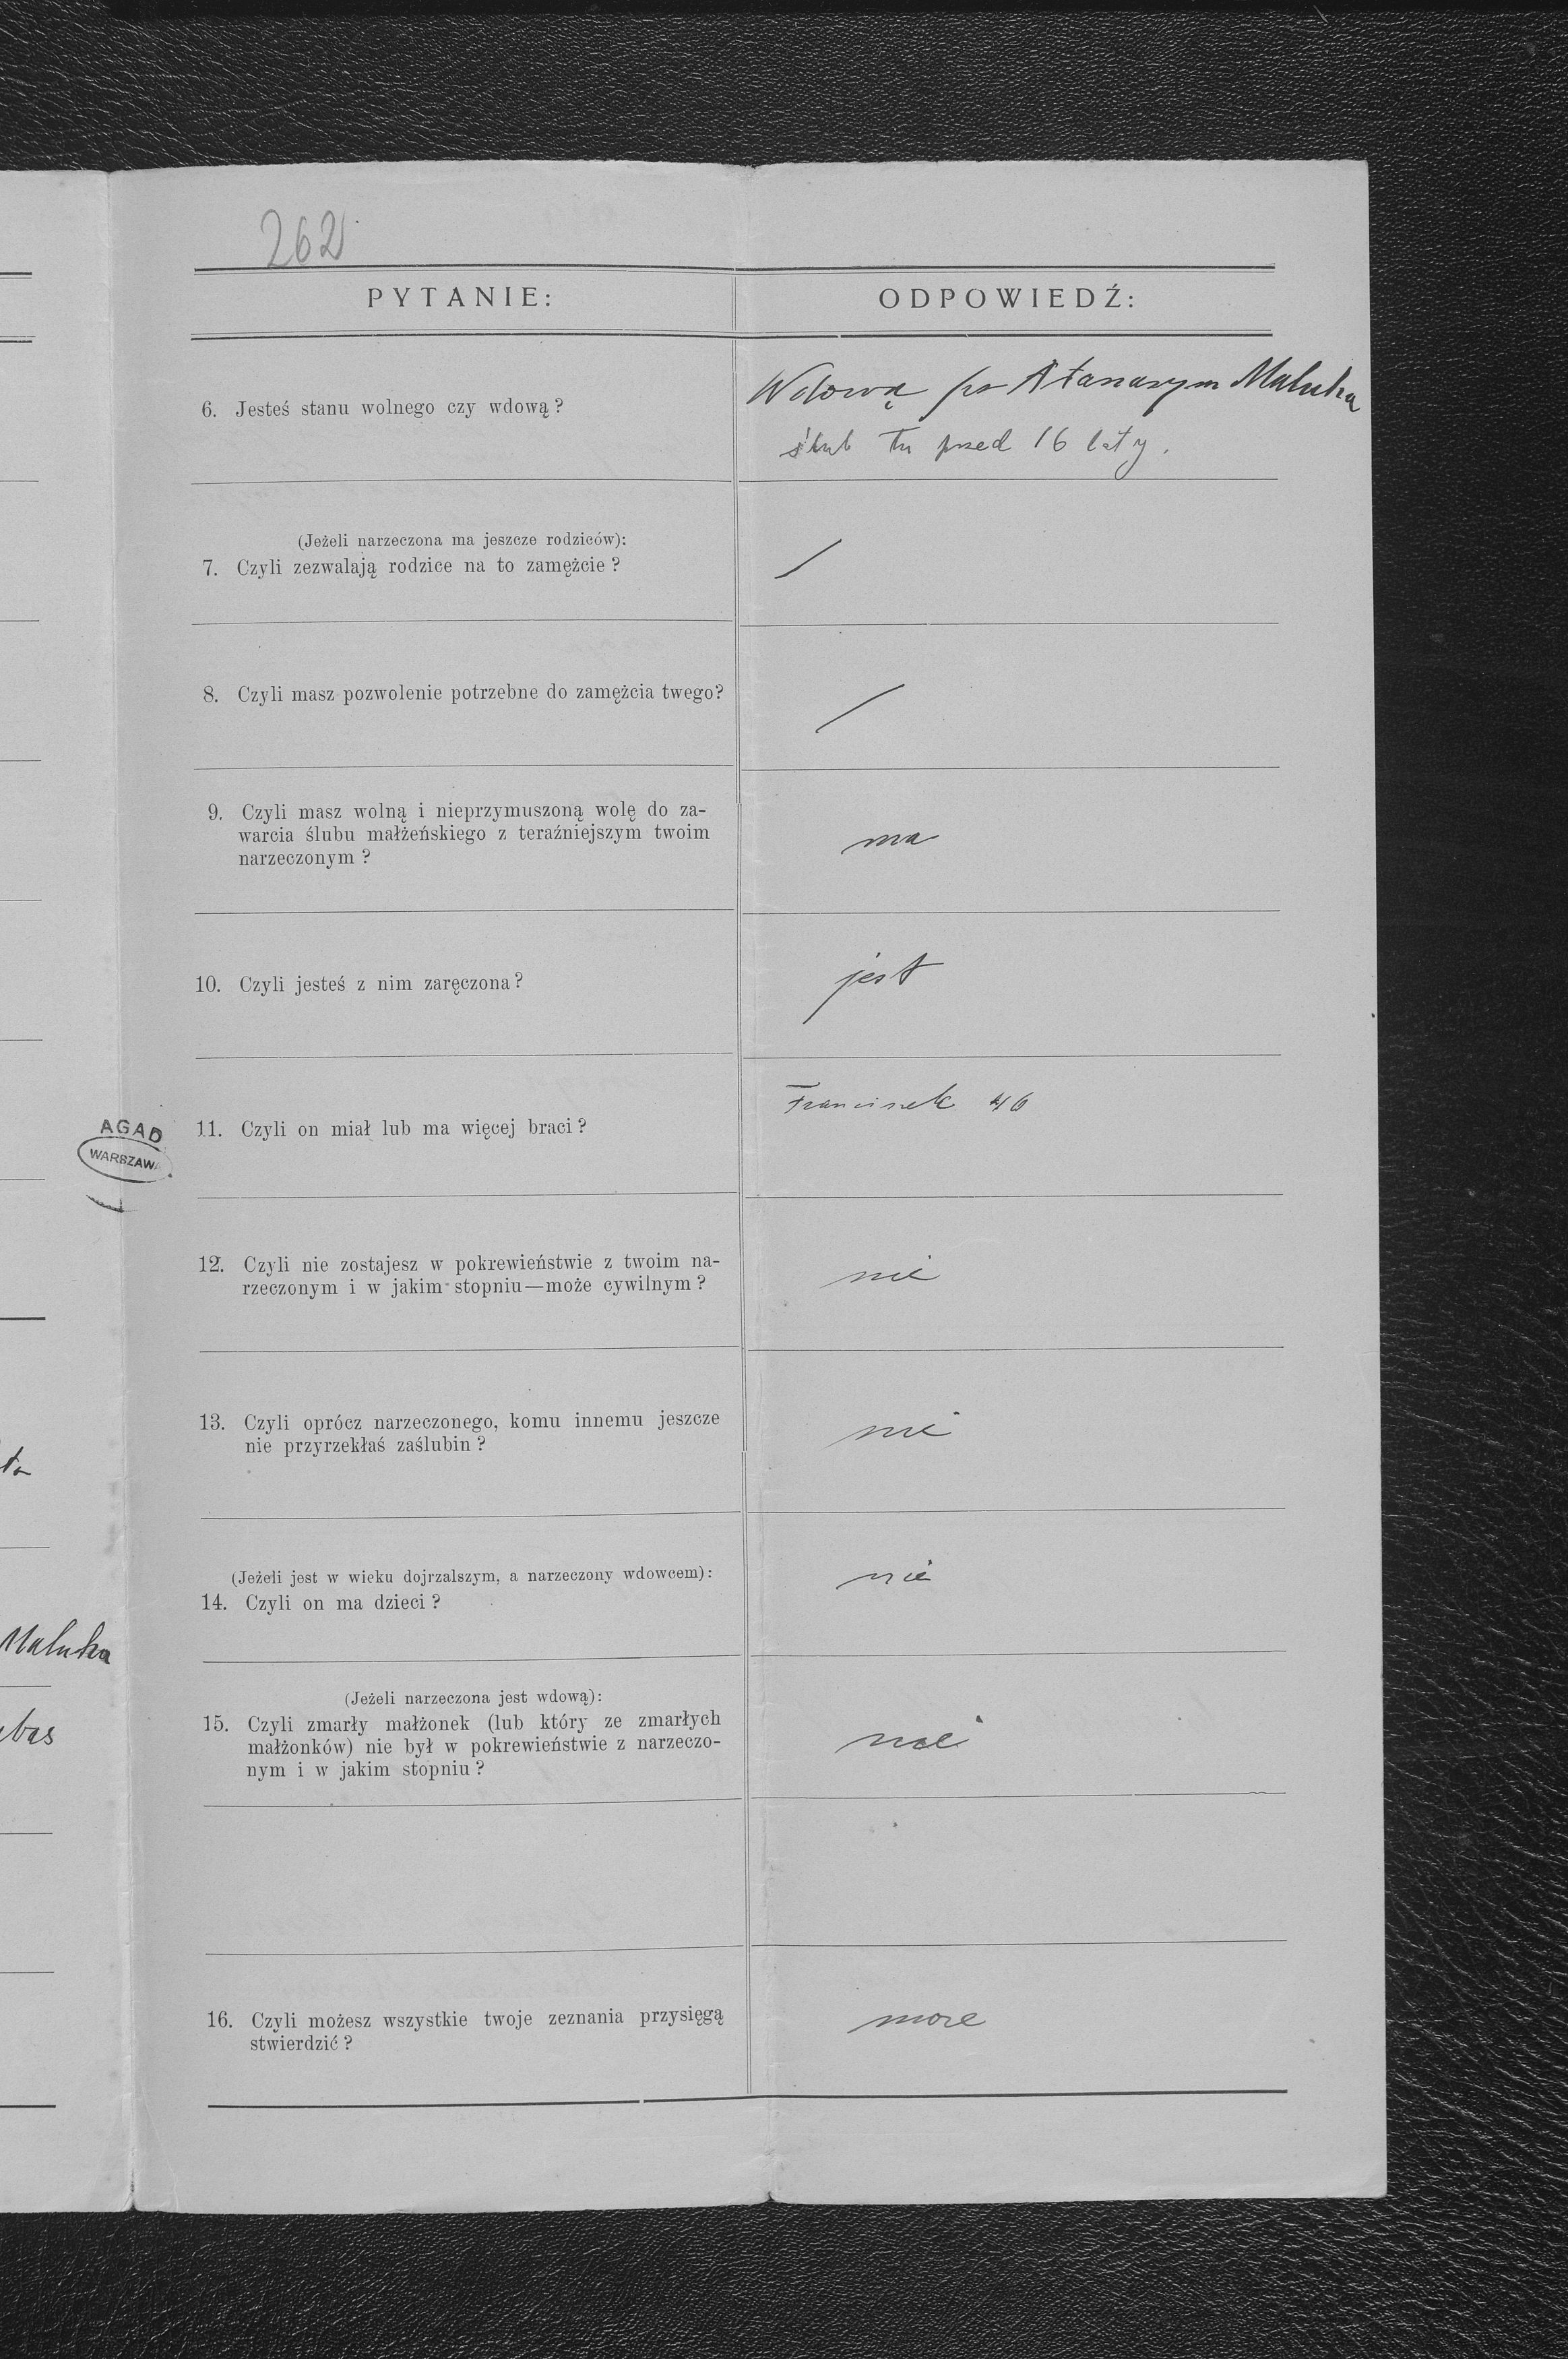 262
PYTANIE:
ODPOWIEDŹ:
6. Jesteś stanu wolnego czy wdową?
Wdową po Atanazym Maluha
ślub tu przed 16 laty.
(Jeżeli narzeczona ma jeszcze rodziców):
7. Czyli zezwalają rodzice na to zamężcie?
/
8. Czyli masz pozwolenie potrzebne do zamężcia twego?
/
9. Czyli masz wolną i nieprzymuszoną wolę do za-
warcia ślubu małżeńskiego z teraźniejszym twoim
narzeczonym?
ma
10. Czyli jesteś z nim zaręczona?
jest
11. Czyli on miał lub ma więcej braci?
Franciszek 46
AGAD
WARSZAWA
12. Czyli nie zostajesz w pokrewieństwie z twoim na-
rzeczonym i w jakim stopniu—może cywilnym?
nie
13. Czyli oprócz narzeczonego, komu innemu jeszcze
nie przyrzekłaś zaślubin?
nie
(Jeżeli jest w wieku dojrzalszym, a narzeczony wdowcem):
14. Czyli on ma dzieci?
nie
Maluha
(Jeżeli narzeczona jest wdową):
15. Czyli zmarły małżonek (lub który ze zmarłych
małżonków) nie był w pokrewieństwie z narzeczo-
nym i w jakim stopniu?
nie
16. Czyli możesz wszystkie twoje zeznania przysięgą
stwierdzić?
może